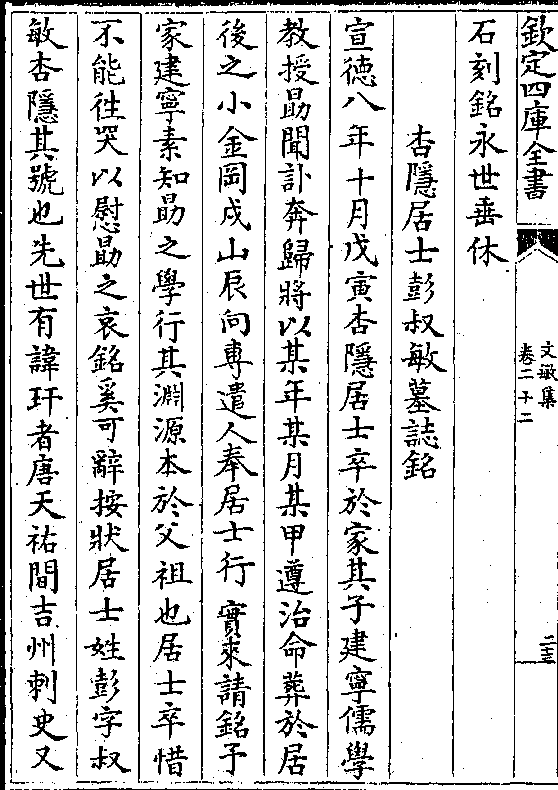 欽定四庫全書
文敏集
卷二十二
二十三
石刻銘永世垂休
杏隱居士彭叔敏墓誌銘
宣德八年十月戊寅杏隱居士卒於家其子建寧儒學
教授勗聞訃奔歸將以某年某月某甲遵治命葬於居
後之小金岡戌山辰向專遣人奉居士行實來請銘予
家建寧素知勗之學行其淵源本於父祖也居士卒惜
不能往哭以慰勗之哀銘奚可辭按狀居士姓彭字叔
敏杏隱其號也先世有諱玕者唐天祐間吉州刺史又